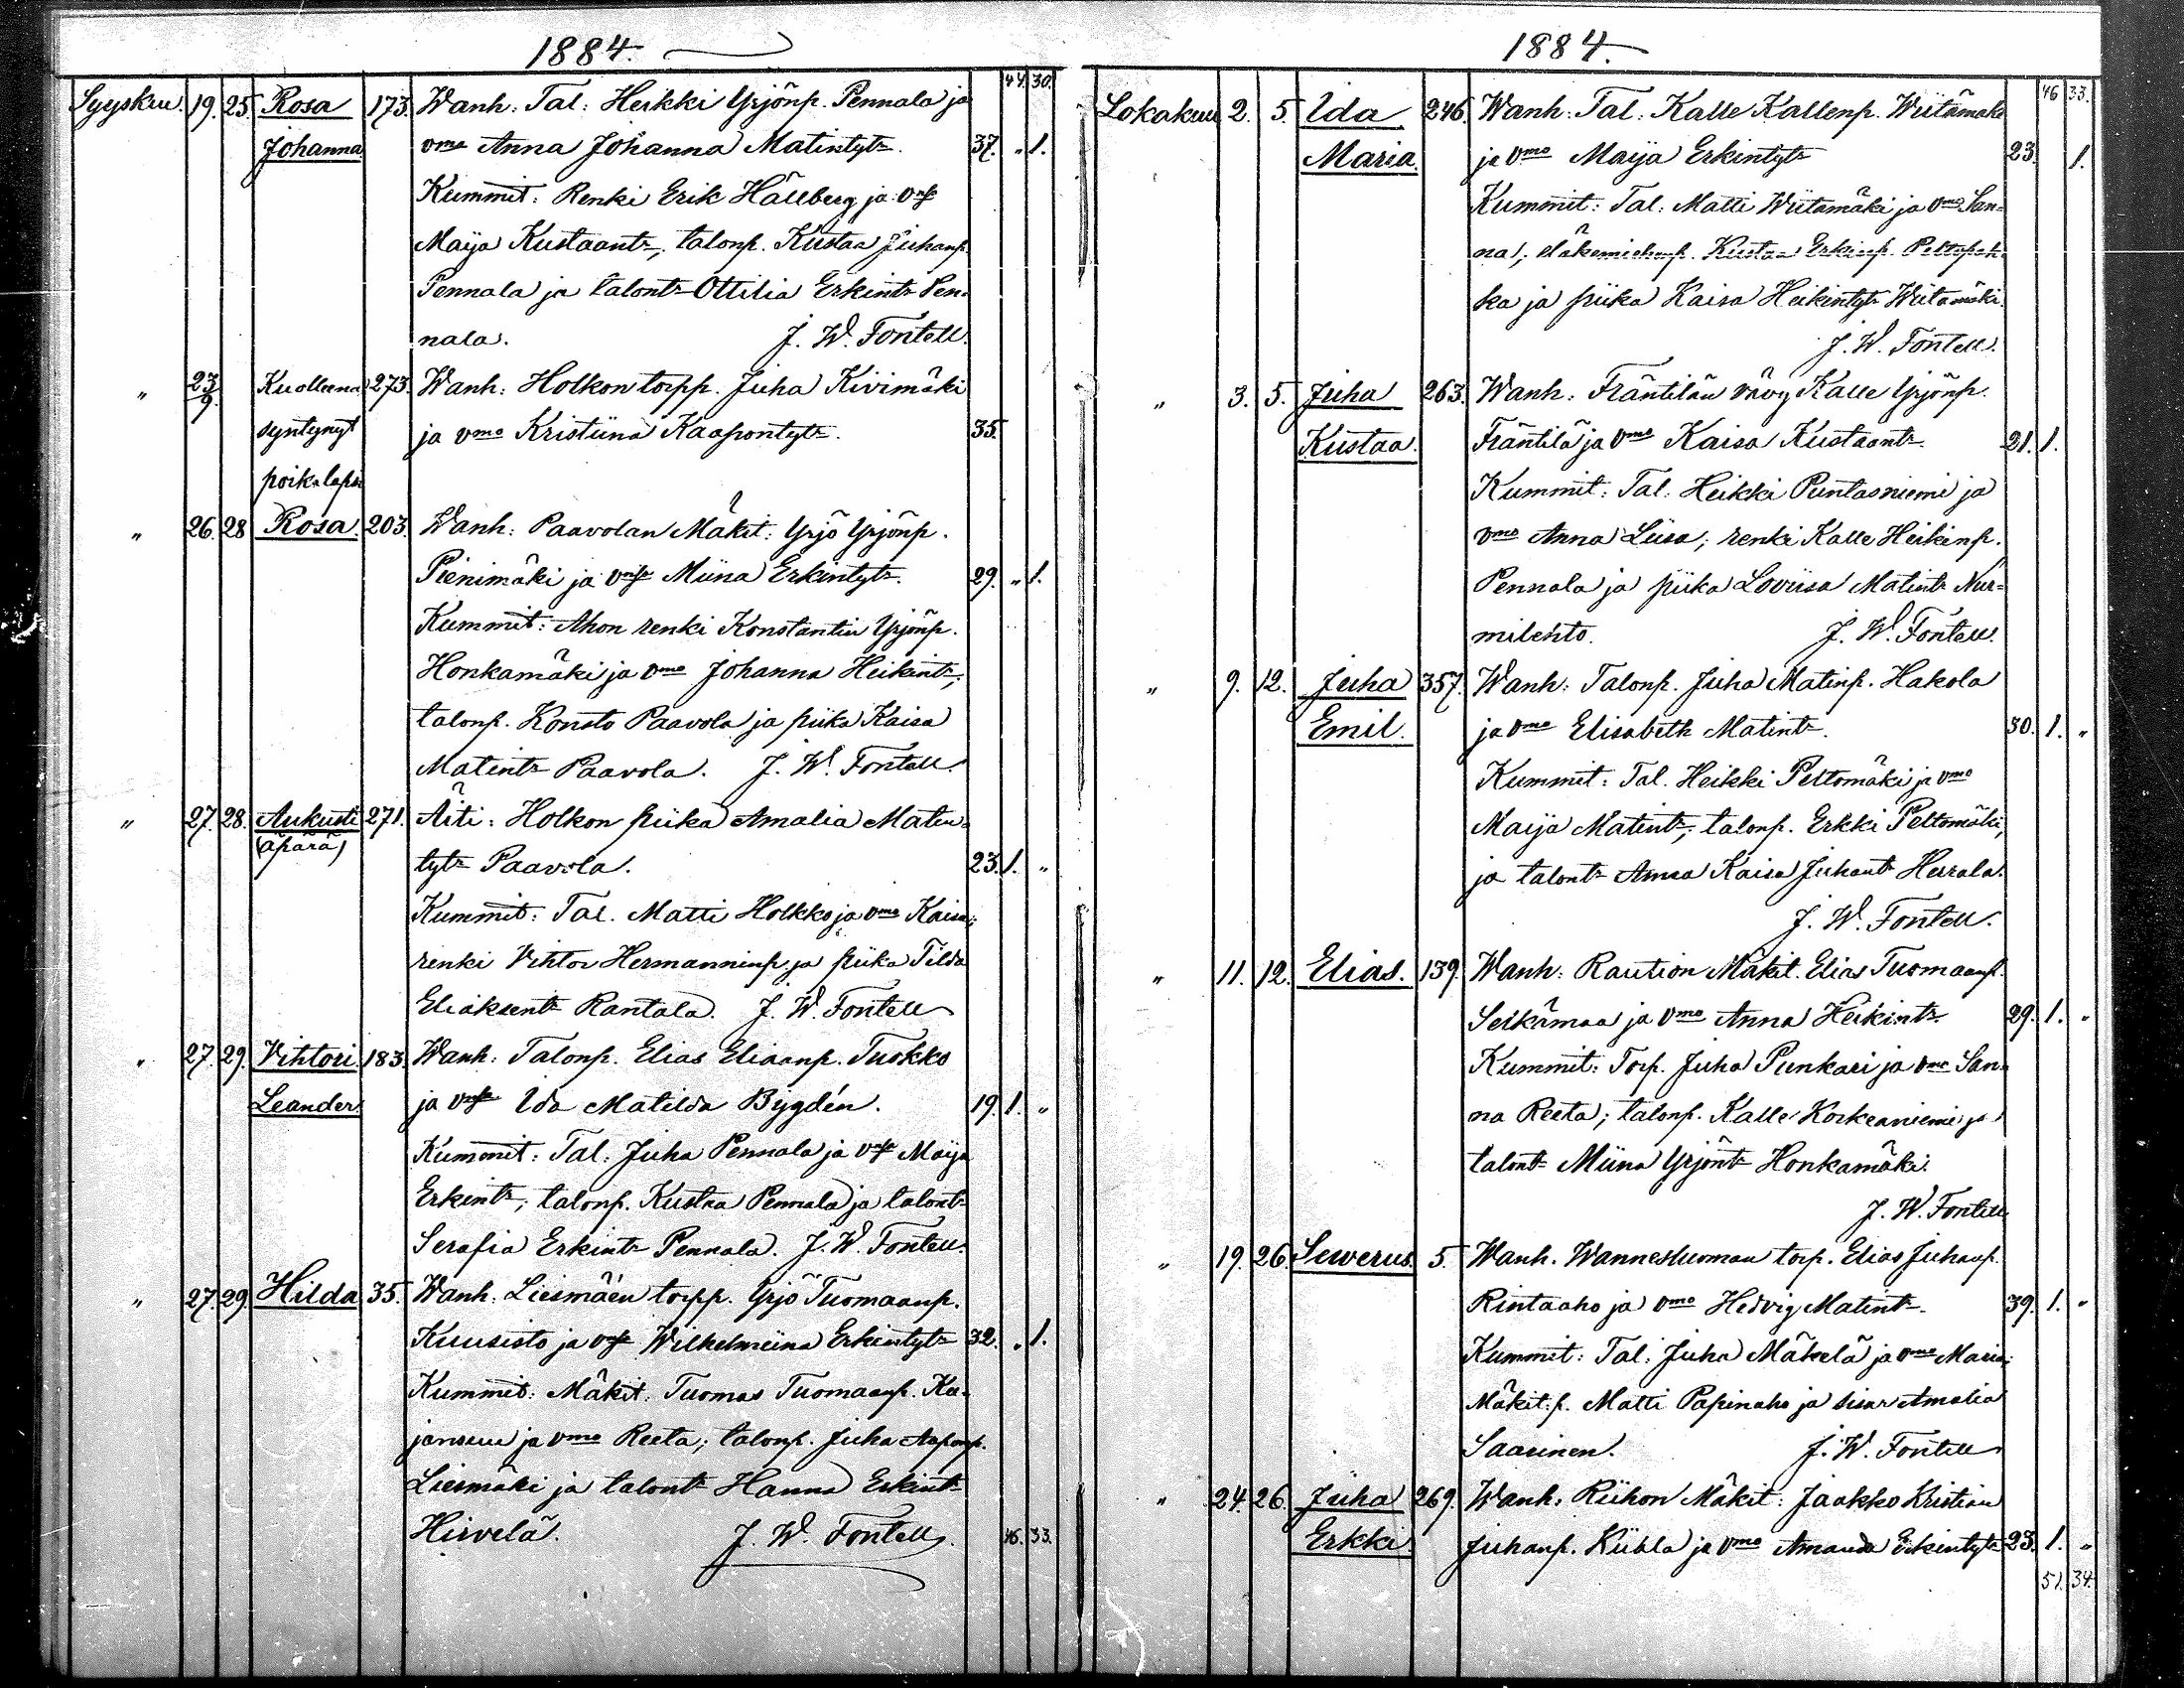 1884.
44. 30.
Syyskuu. 19. 25. Rosa 173. Wanh: Tal: Heikki Yrjönp. Pennala ja
Johanna. vmo Anna Johanna Matintytr. 37. " 1.
Kummit: Renki Erik Hällberg ja
Maija Kustaantr, talonp. Kustaa Juhanp.
Pennala ja talontr Ottilia Erkintr Pen-
nala. J. W. Fontell.
" 23/9. Kuolleena 273. Wanh: Holkon torpp. Juha Kivimäki
syntynyt ja vmo Kristiina Kaapontytr. 35.
poikalapsi
" 26. 28 Rosa. 203. Wanh: Paavolan Mäkit: Yrjö Yrjönp.
Pienimäki ja Miina Erkintytr. 29. " 1.
Kummit: Ahon renki Konstantin Yrjönp.
Honkamäki ja vmo Johanna Heikintr;
talonp. Konsto Paavola ja piika Kaisa
Matintr Paavola. J. W. Fontell.
" 27. 28. Aukusti 271. Äiti: Holkon piika Amalia Matin-
(äpärä) tytr Paavola. 23. 1. "
Kummit: Tal. Matti Holkko ja vmo Kaisa;
renki Vihtor Hermanninp. ja piika Tilda
Eliaksentr Rantala. J. W. Fontell
" 27. 29. Vihtori 183. Wanh: Talonp. Elias Eliaanp. Tuokko
Leander. ja Ida Matilda Bygdén. 19. 1. "
Kummit: Tal: Juha Pennala ja Maija
Erkintr; talonp. Kustaa Pennala ja talontr
Serafia Erkintr Pennala. J. W. Fontell.
" 27. 29. Hilda 35. Wanh: Liesmäen torpp. Yrjö Tuomaanp.
Kuusisto ja Wilhelmiina Erkintytr 32. " 1.
Kummit: Mäkit. Tuomas Tuomaanp. Ka-
ja vmo Reeta; talonp. Juha Aaponp.
Liesmäki ja talontr Hanna Erkintr
Hirvelä. J. W. Fontell. 46. 33.
1884.
46 33.
Lokakuu 2. 5. Ida 246. Wanh: Tal: Kalle Kallenp. Wiitamäki
Maria. ja vmo Maija Erkintytr 23. 1.
Kummit: Tal: Matti Wiitamäki ja vmo San-
na; Kustaa Erkinp.
ka ja piika Kaisa Heikintytr Wiitamäki.
J. W. Fontell.
" 3. 5. Juha 263. Wanh: Fräntilän vävy Kalle Yrjönp.
Kustaa. Fräntilä ja vmo Kaisa Kustaantr. 21. 1.
Kummit: Tal: Heikki Puntasniemi ja
vmo Anna Liisa; renki Kalle Heikinp.
Pennala ja piika Loviisa Matintr Nur-
milehto. J. W. Fontell.
" 9. 12. Juha 357. Wanh: Talonp. Juha Matinp. Hakola
Emil. ja vmo Elisabeth Matintr. 30. 1. "
Kummit: Tal. Heikki Peltomäki ja vmo
Maija Matintr; talonp. Erkki Peltomäki,
ja talontr Anna Kaisa Juhantr Herrala.
J. W. Fontell.
" 11. 12. Elias. 139. Wanh: Raution Mäkit. Elias Tuomaanp.
Seikämaa ja vmo Anna Heikintr. 29. 1. "
Kummit: Torp. Juha Punkari ja vmo San-
na Reeta; talonp. Kalle Korkeaniemi ja
talontr Miina Yrjöntr Honkamäki.
J. W. Fontell
" 19. 26. Sewerus. 5. Wanh. Wannesluoman torp. Elias Juhanp.
Rintaaho ja vmo Hedvig Matintr. 39. 1. "
Kummit: Tal: Juha Mäkelä ja vmo Maria;
Mäkit.p. Matti Papinaho ja sisar Amalia
Saarinen. J. W. Fontell
" 24. 26. Juha 269. Wanh: Riihon Mäkit: Jaakko Kristian
Erkki Juhanp. ja vmo Amanda Erkintytr 23. 1. "
51. 34.